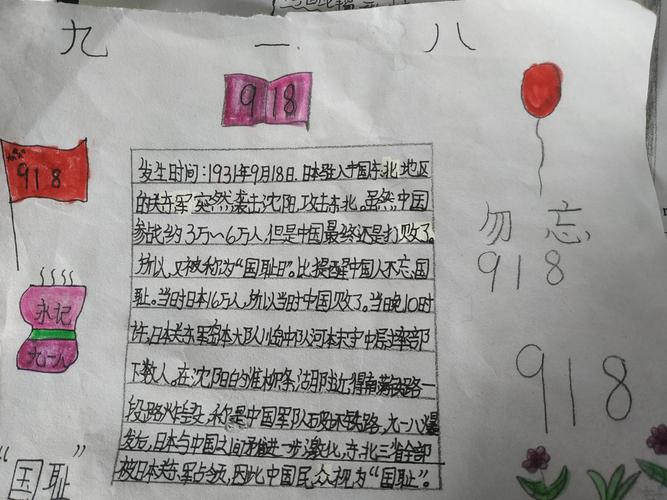 九 一 八
918
918
永记
九一八
勿忘
918
918
"国耻"
发生时间：1931年9月18日，日本驻入中国东北地区
的关东军突然袭击沈阳，攻击东北。虽然中国
参战约3万～6万人，但是中国最终还是打败了。
所以，又被称为"国耻日"。比提醒中国人不忘国
耻。当时日本16万人，所以当时中国败了。当晚10时
许，日本关东军 大队川岛中队河本末守中 率部
下数人，在沈阳 柳条湖附近 南满铁路一
段路炸毁，称是中国军队 铁路，九一八爆
发后，日本与中国之间矛盾进一步激化，东北三省全部
被日本关东军占领，因此中国民众视为"国耻"。